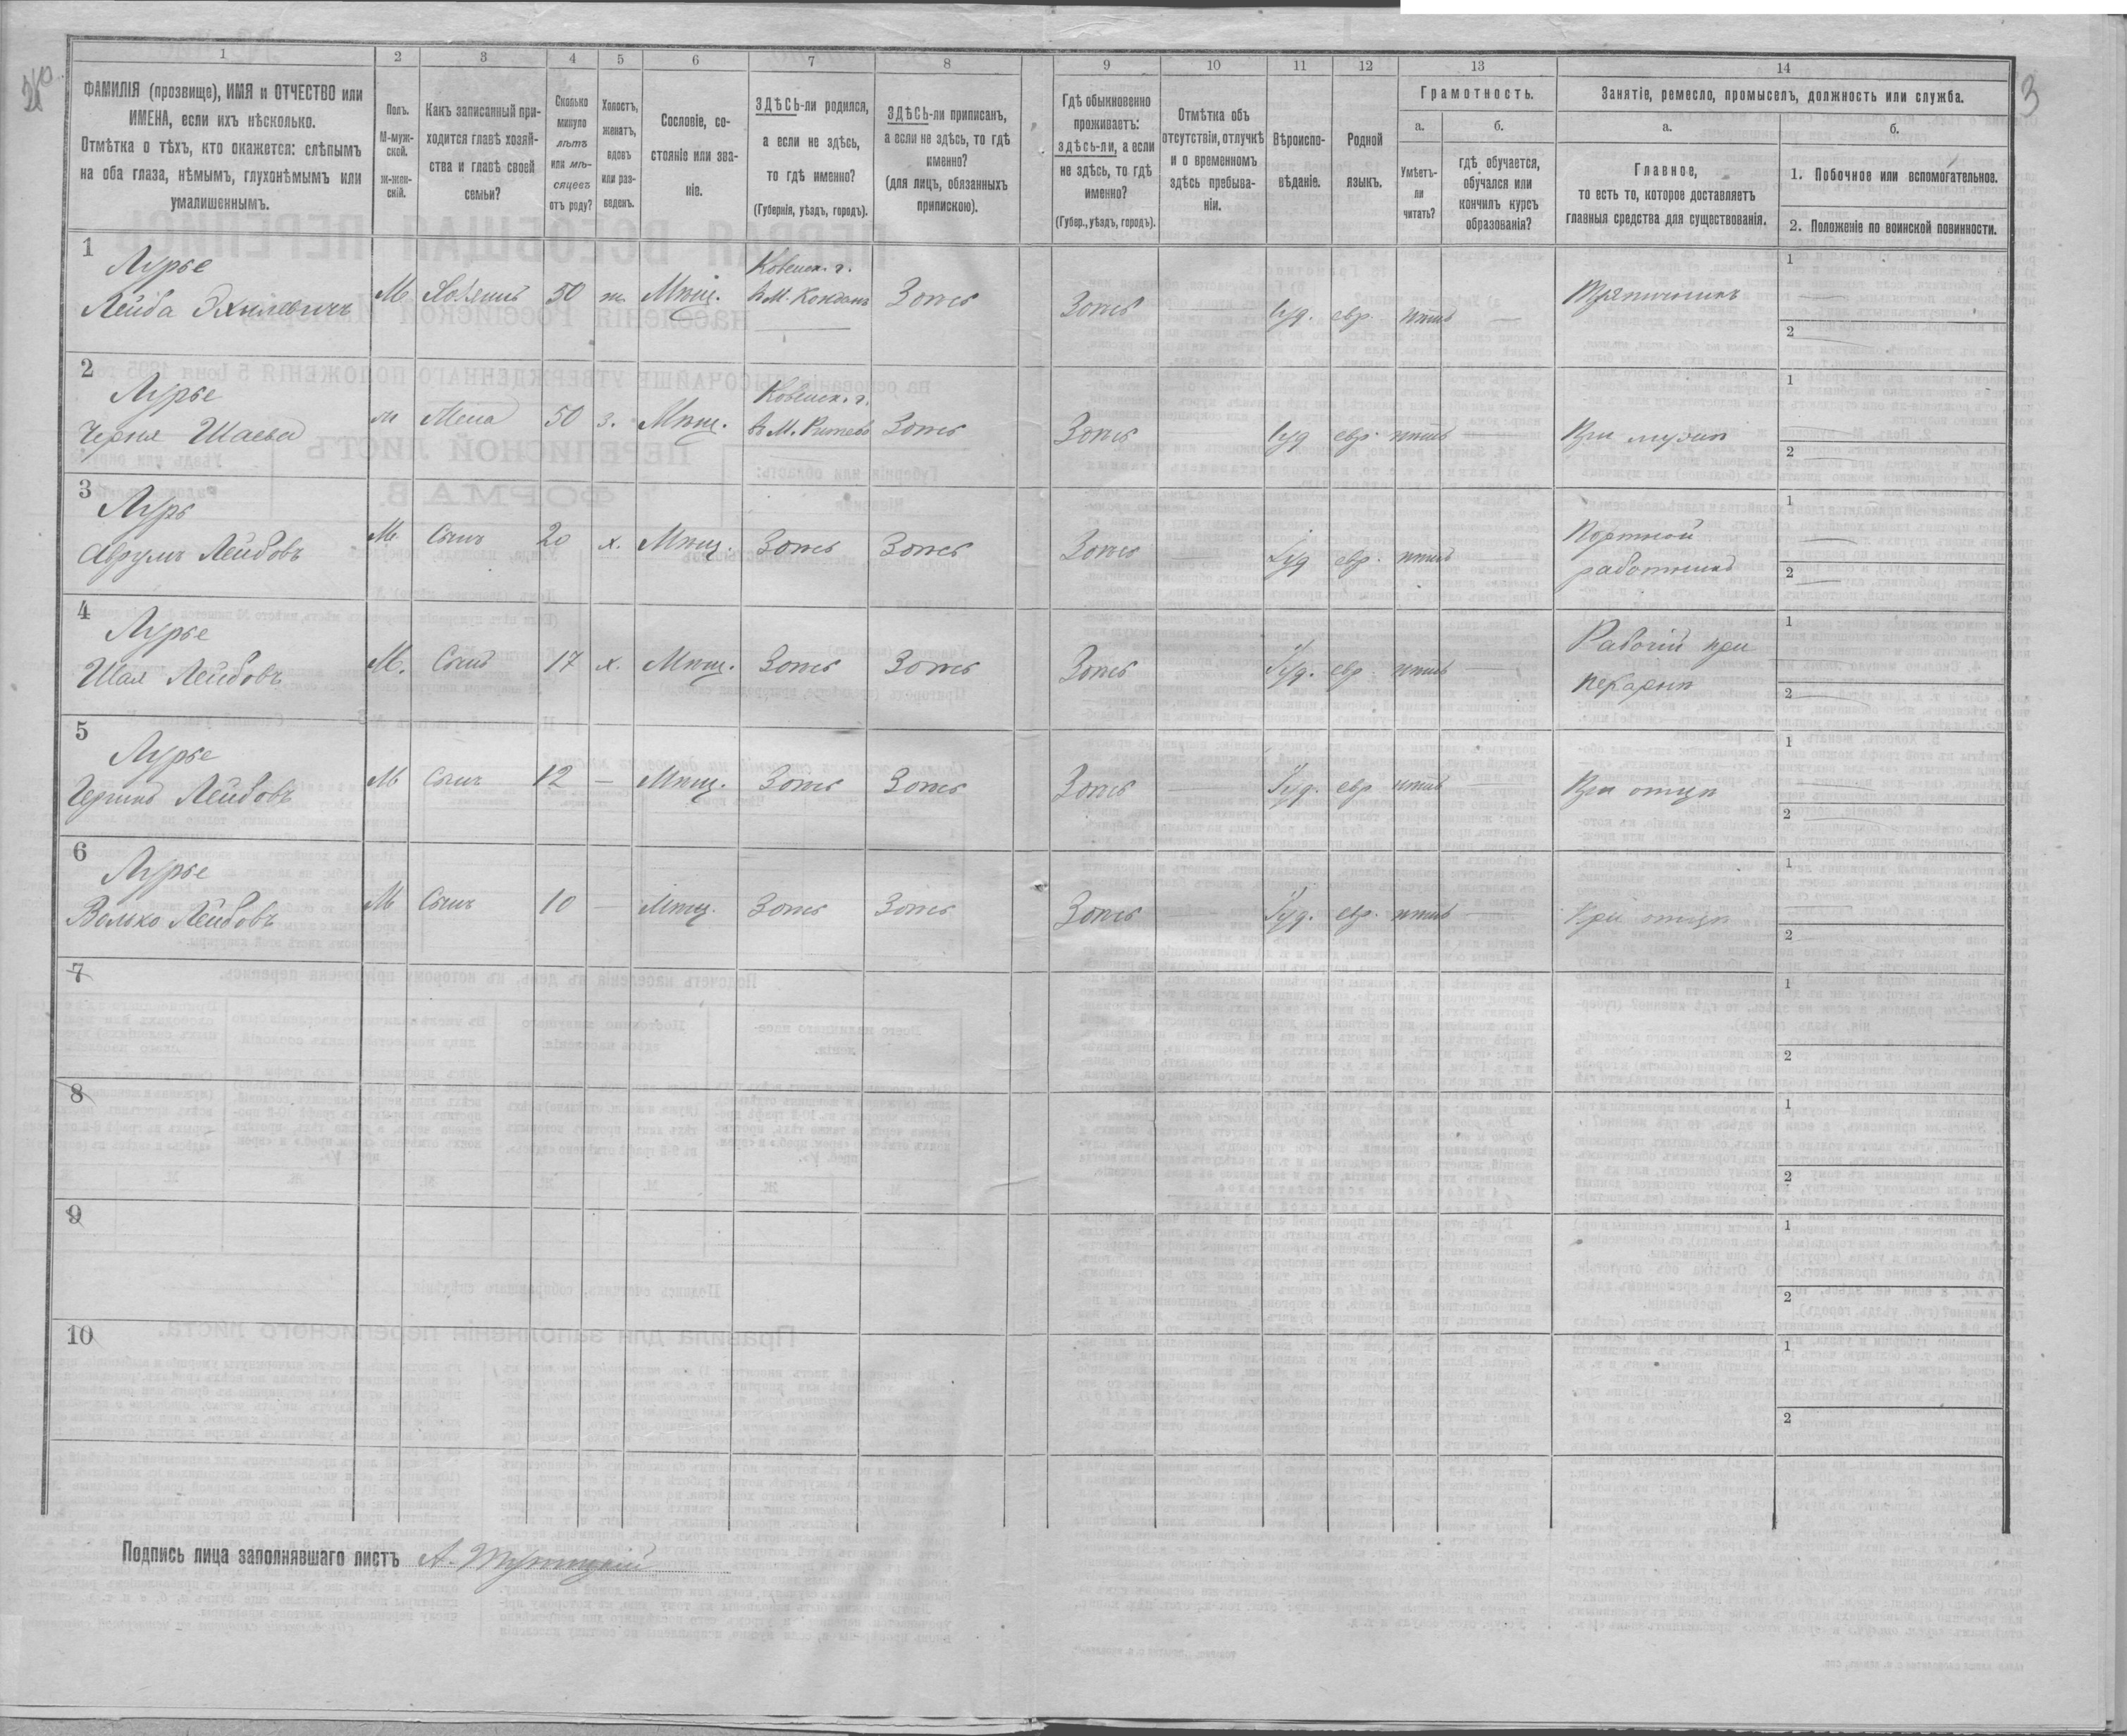 3
1 2 3 4 5 6 7 8 9 10 11 12 13 14
ФАМИЛІЯ (прозвище), ИМЯ и ОТЧЕСТВО или
ИМЕНА, если ихъ нѣсколько.
Отмѣтка о тѣхъ, кто окажется: слѣпымъ
на оба глаза, нѣмымъ, глухонѣмымъ или
умалишеннымъ.
Полъ.
М-муж-
ской.
ж-жен-
скій.
Какъ записанный при-
ходится главѣ хозяй-
ства и главѣ своей
семьи?
Сколько
минуло
лѣтъ
или мѣ-
сяцевъ
отъ роду?
Холостъ,
женатъ,
вдовъ
или раз-
веденъ.
Сословіе, со-
стояніе или зва-
ніе.
ЗДѢСЬ-ли родился,
а если не здѣсь,
то гдѣ именно?
(Губернія, уѣздъ, городъ).
ЗДѢСЬ-ли приписанъ,
а если не здѣсь, то гдѣ
именно?
(для лицъ, обязанныхъ
припискою).
Гдѣ обыкновенно
проживаетъ:
здѣсь-ли, а если
не здѣсь, то гдѣ
именно?
(Губер., уѣздъ, городъ).
Отмѣтка объ
отсутствіи, отлучкѣ
и о временномъ
здѣсь пребыва-
ніи.
Вѣроиспо-
вѣданіе.
Родной
языкъ.
Грамотность.
а.
Умѣетъ-
ли
читать?
б.
гдѣ обучается,
обучался или
кончилъ курсъ
образованія?
Занятіе, ремесло, промыселъ, должность или служба.
а.
Главное,
то есть то, которое доставляетъ
главныя средства для существованія.
б.
1. Побочное или вспомогательное.
2. Положеніе по воинской повинности.
1
Лурье
Лейба Эхилевичъ
М. Хозяинъ 50 ж. Мѣщ.
Ковенск. г.
Здѣсь Здѣсь — Іуд. евр. нѣтъ —
Тряпичникъ
1 —
2 —
2
Лурье
Черня Шаева
Жена 50 з. Мѣщ.
Ковенск. г.
Здѣсь Здѣсь — Іуд евр нѣтъ —
При мужѣ
1 —
2 —
3
Лурье
Абрумъ Лейбовъ
М. Сынъ 20 х. Мѣщ. Здѣсь Здѣсь Здѣсь — Іуд евр. нѣтъ —
Портной
работникъ
1 —
2 —
4
Лурье
Шая Лейбовъ
М. Сынъ 17 х. Мѣщ. Здѣсь Здѣсь Здѣсь — Іуд. евр. нѣтъ —
Рабочій при
пекарнѣ
1 —
2 —
5
Лурье
Лейбовъ
М Сынъ 12 — Мѣщ. Здѣсь Здѣсь Здѣсь — Іуд. евр нѣтъ —
При отцѣ
1 —
2 —
6
Лурье
Волько Лейбовъ
М Сынъ 10 — Мѣщ. Здѣсь Здѣсь Здѣсь — Іуд. евр. нѣтъ —
При отцѣ
1 —
2
7
1
2
8
1
2
9
1
2
10
1
2
Подпись лица заполнявшаго листъ А.